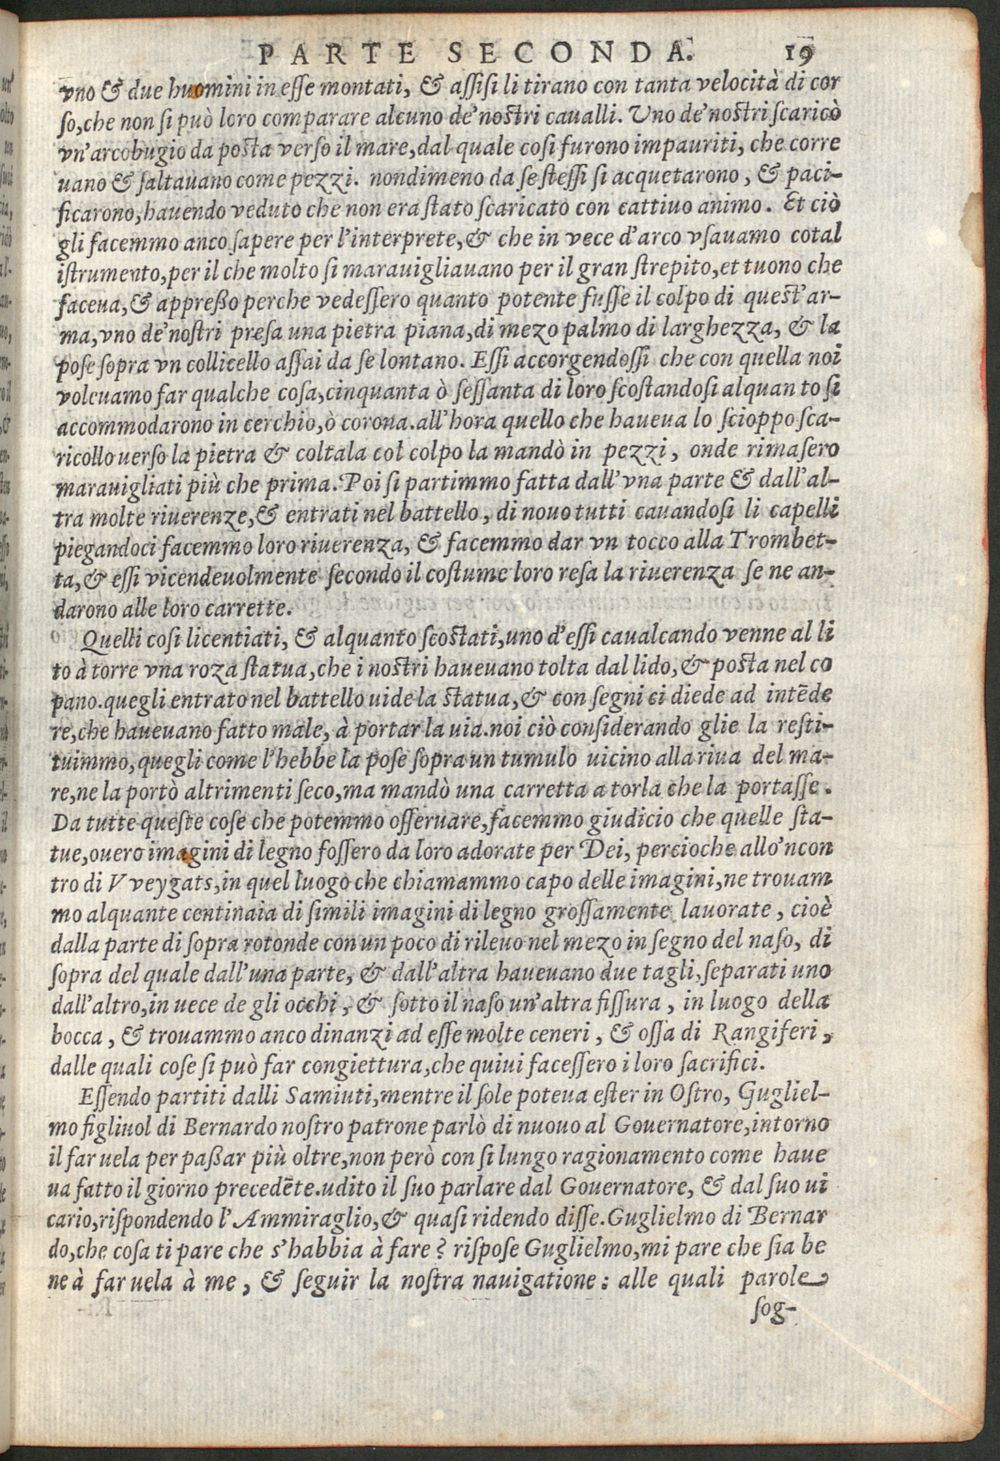 PARTE SECONDA. 19
vno & due huomini in esse montati, & assisi li tirano con tanta velocità di cor
so, che non si può loro comparare alcuno de' nostri caualli. Uno de' nostri scaricò
vn' arcobugio da posta verso il mare, dal quale cosi furono impauriti, che corre
uano & saltauano come pezzi. nondimeno da se stessi si acquetarono, & paci-
ficarono, hauendo veduto che non era stato scaricato con cattiuo animo. Et ciò
gli facemmo anco sapere per l'interprete, & che in vece d'arco vsauamo cotal
istrumento, per il che molto si marauigliauano per il gran strepito, et tuono che
faceua, & appreßo perche vedessero quanto potente fusse il colpo di quest' ar-
ma, vno de' nostri presa una pietra piana, di mezo palmo di larghezza, & la
pose sopra vn collicello assai da se lontano. Essi accorgendossi che con quella noi
voleuamo far qualche cosa, cinquanta ò sessanta di loro scostandosi alquan to si
accommodarono in cerchio, ò corona. all'hora quello che haueua lo scioppo sca-
ricollo uerso la pietra & coltala col colpo la mandò in pezzi, onde rimasero
marauigliati più che prima. Poi si partimmo fatta dall' vna parte & dall' al-
tra molte riuerenze, & entrati nel battello, di nouo tutti cauandosi li capelli
piegandoci facemmo loro riuerenza, & facemmo dar vn tocco alla Trombet-
ta, & essi vicendeuolmente secondo il costume loro resa la riuerenza se ne an-
darono alle loro carrette.
Quelli cosi licentiati, & alquanto scostati, uno d'essi caualcando venne al li
to à torre vna roza statua, che i nostri haueuano tolta dal lido, & posta nel co
pano. quegli entrato nel battello uide la statua, & con segni ci diede ad intēde
re, che haueuano fatto male, à portar la uia. noi ciò considerando glie la resti-
tuimmo, quegli come l'hebbe la pose sopra un tumulo uicino alla riua del ma-
re, ne la portò altrimenti seco, ma mandò una carretta a torla che la portasse.
Da tutte queste cose che potemmo osseruare, facemmo giudicio che quelle sta-
tue, ouero imagini di legno fossero da loro adorate per Dei, percioche allo'ncon
tro di Vveygats, in quel luogo che chiamammo capo delle imagini, ne trouam
mo alquante centinaia di simili imagini di legno grossamente lauorate, cioè
dalla parte di sopra rotonde con un poco di rileuo nel mezo in segno del naso, di
sopra del quale dall'una parte, & dall'altra haueuano due tagli, separati uno
dall'altro, in uece de gli occhi, & sotto il naso un'altra fissura, in luogo della
bocca, & trouammo anco dinanzi ad esse molte ceneri, & ossa di Rangiferi,
dalle quali cose si può far congiettura, che quiui facessero i loro sacrifici.
Essendo partiti dalli Samiuti, mentre il sole poteua ester in Ostro, Gugliel-
mo figliuol di Bernardo nostro patrone parlò di nuouo al Gouernatore, intorno
il far uela per paßar più oltre, non però con si lungo ragionamento come haue
ua fatto il giorno precedēte. udito il suo parlare dal Gouernatore, & dal suo ui
cario, rispondendo l'Ammiraglio, & quasi ridendo disse. Guglielmo di Bernar
do, che cosa ti pare che s'habbia à fare? rispose Guglielmo, mi pare che sia be
ne à far uela à me, & seguir la nostra nauigatione: alle quali parole
sog-